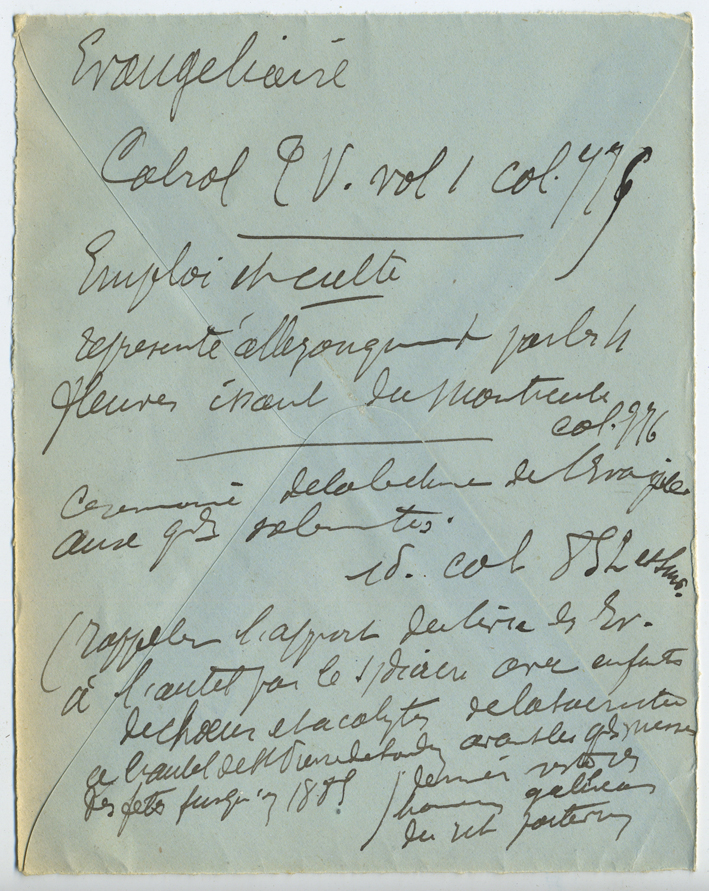 Evangeliaire
Cabrol T V. vol 1 col. 776
Emploi et culte
représenté allegoriquement par les 4
fleuves issant du Monticule
col. 776
Ceremonie de la lecture de l'Evangile
aux gds solennites.
id. col 852 et suiv.
(rappeler l'apport du livre des Ev.
à l'autel par le s/diacre avec enfants
de chœur et acolytes de la sacristie
a l'autel de St Pierre de avant les gdes messes
des fetes jusqu'en 1885
dernier vestige
gallican
du rit